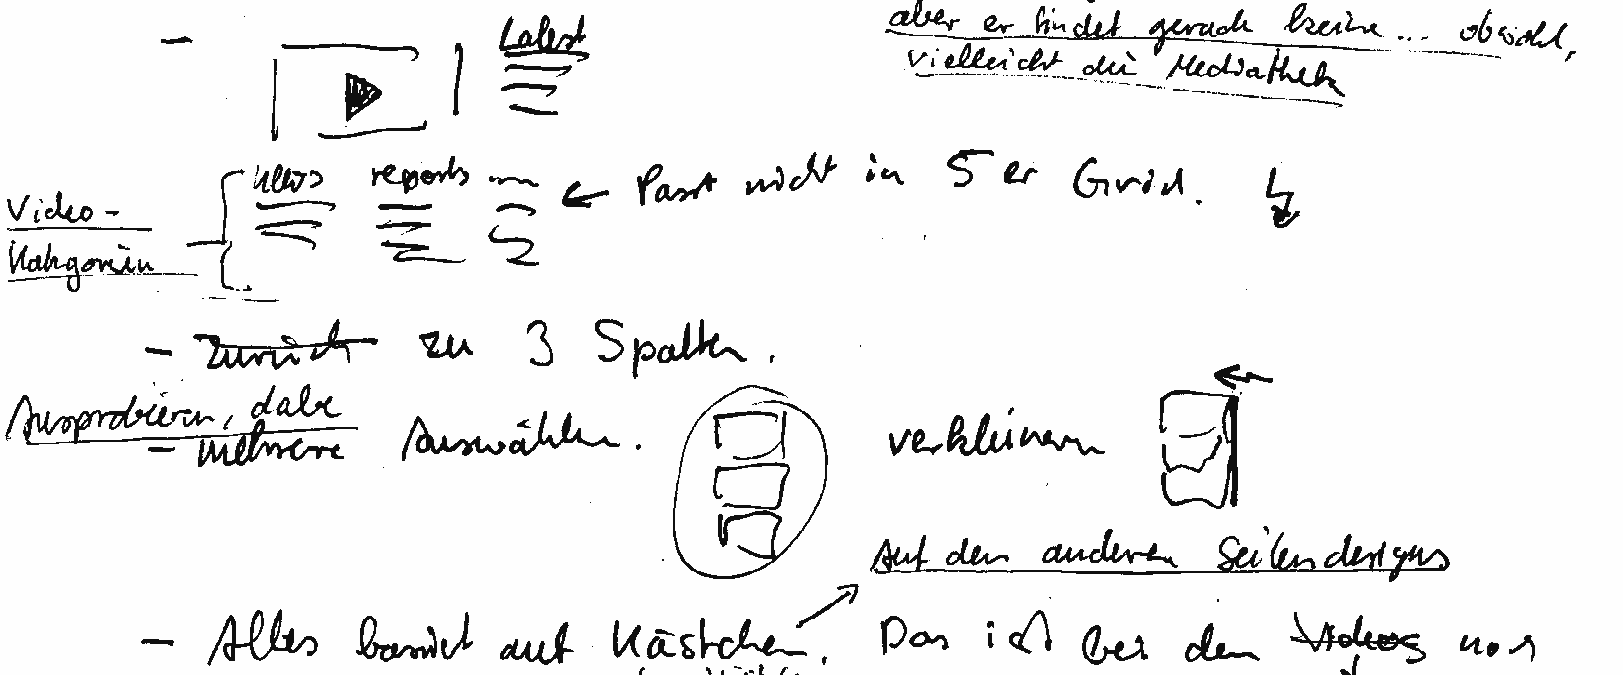 aber er findet gerade keine... obwohl,
vielleicht die Mediathek
Latest
news reports
Passt nicht in 5er Grid.
Video-
Kategorien
- Zurück zu 3 Spalten.
Ausprobieren, dabei
- mehrere Auswählen. verkleinern
Auf den anderen Seitendesigns
- Alles basiert auf Kästchen. Das ist bei den Videos nur